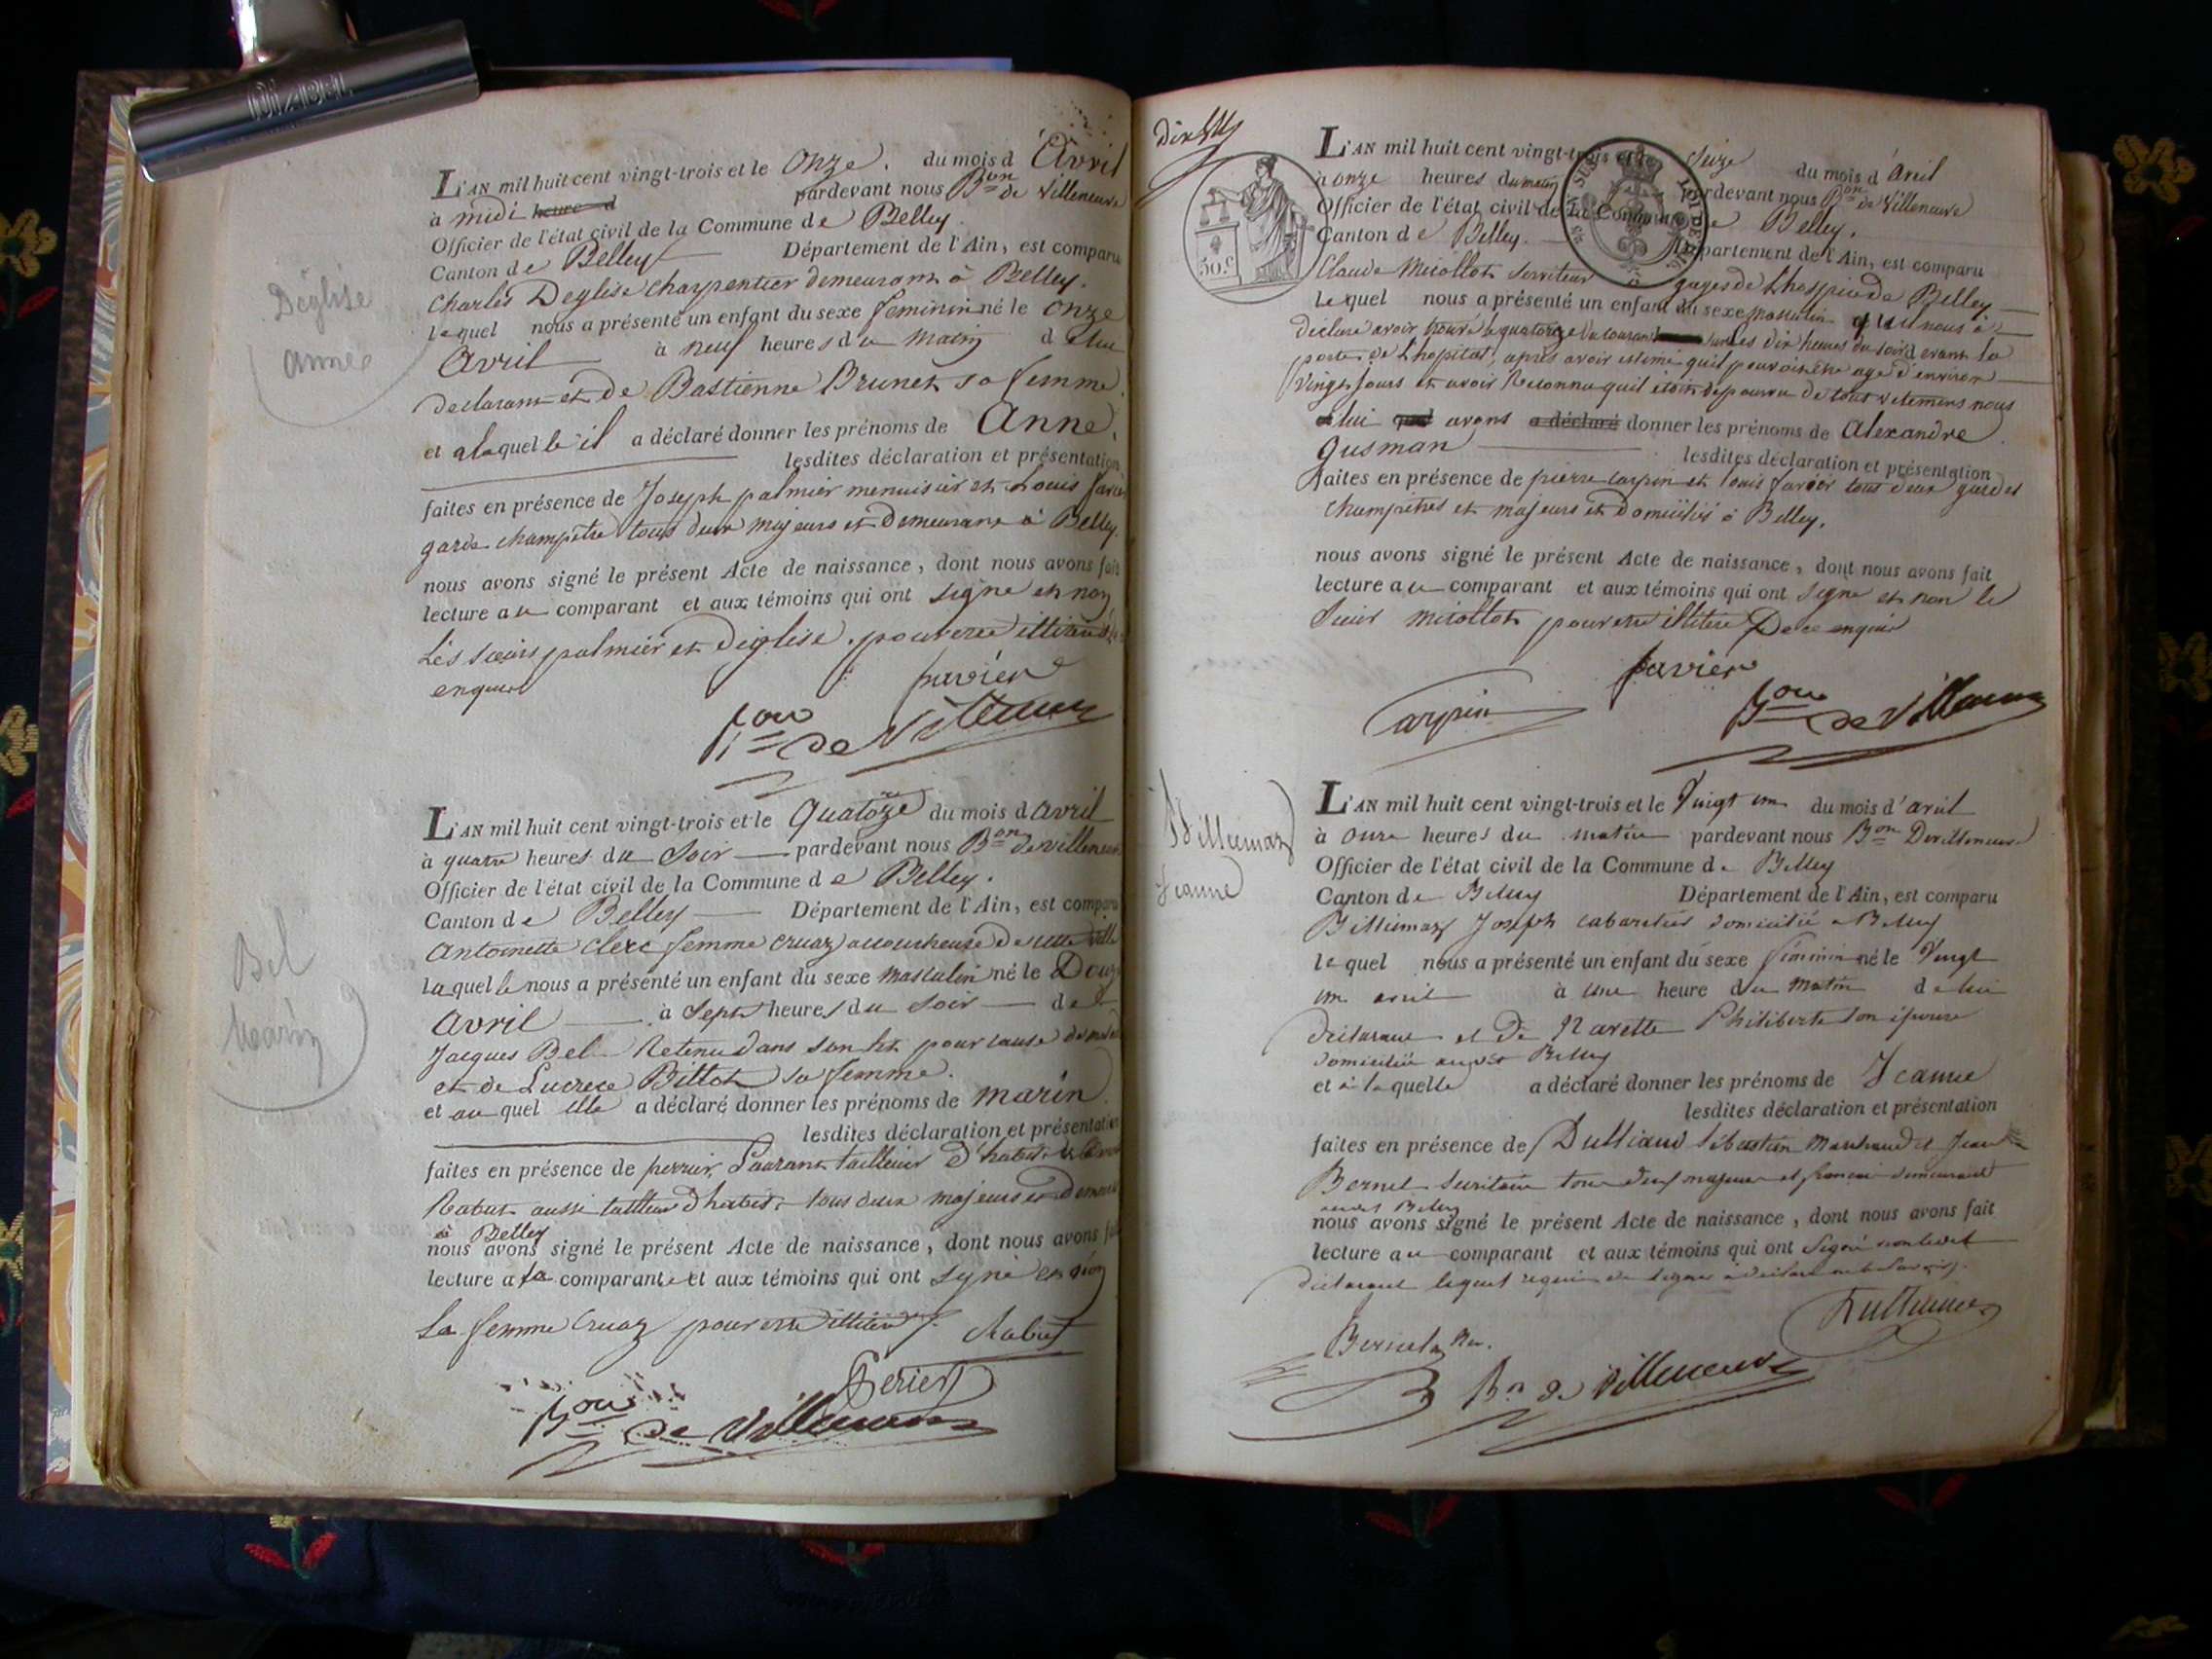 DIABEL
L'AN mil huit cent vingt-trois et le onze. du mois d'Avril
à midi heure d pardevant nous Bon de Villeneuve
Officier de l'état civil de la Commune de Belley
Canton de Belley Département de l'Ain, est comparu
Charles Deglise charpentier demeurant à Belley.
lequel nous a présenté un enfant du sexe feminin né le onze
Avril à neuf heures du matin de lui
declarant et de Bastienne Brunet sa femme
et alaquelle il a déclaré donner les prénoms de Anne.
lesdites déclaration et présentation
faites en présence de Joseph palmier menuisier et Louis favier
garde champetre tous deux majeurs et demeurant à Belley.
nous avons signé le présent Acte de naissance, dont nous avons fait
lecture au comparant et aux témoins qui ont signé et non
les sieurs palmier et Deglise. pour etre illitérés de ce
enquis
favier
Bon de Villeneuve
Déglise
année
L'AN mil huit cent vingt-trois et le Quatoze du mois d'avril
à quatre heures du Soir pardevant nous Bon de villeneuve
Officier de l'état civil de la Commune de Belley.
Canton de Belley Département de l'Ain, est comparu
Antoinette Clerc femme cruaz accoucheuse de cette ville
laquelle nous a présenté un enfant du sexe masculin né le Douze
Avril à Sept heures du Soir de
Jacques Bel Retenu dans son lit pour cause de
et de Lucrece Billot sa femme.
et au quel elle a déclaré donner les prénoms de marin.
lesdites déclaration et présentation
faites en présence de perrier Laurant tailleur d'habits
Rabut aussi tailleur d'habits tous deux majeurs et
à Belley
nous avons signé le présent Acte de naissance, dont nous avons fait
lecture a la comparante et aux témoins qui ont signé et non
La femme Cruaz pour etre illitérée.
Rabut
Perier
Bon de Villeneuve
Bel
Marin
L'AN mil huit cent vingt-trois et le Seize du mois d'Avril
à onze heures du matin pardevant nous Bon de Villeneuve
Officier de l'état civil de la Commune de Belley.
Canton de Belley. Département de l'Ain, est comparu
Claude Micollot Serviteur gages de l'hospice de Belley
lequel nous a présenté un enfant du sexe masculin qu'il nous a
déclaré avoir trouvé le quatorze du courant sur les dix heures du soir devant la
porte de l'hopital, après avoir estimé qu'il pouvoit etre agé d'environ
vingt jours et avoir Reconnu qu'il etoit depourvu de tout vetemens nous
lui avons a déclaré donner les prénoms de Alexandre
Gusman lesdites déclaration et présentation
faites en présence de pierre Carpin et Louis favier tous deux gardes
champetres et majeurs et Domiciliés à Belley.
nous avons signé le présent Acte de naissance, dont nous avons fait
lecture au comparant et aux témoins qui ont signé et non le
Sieur Micollot pour etre illitéré De ce enquis
favier
Carpin
Bon de Villeneuve
50.c
L'AN mil huit cent vingt-trois et le Vingt un du mois d'avril
à onze heures du matin pardevant nous Bon Devilleneuve
Officier de l'état civil de la Commune de Belley
Canton de Belley Département de l'Ain, est comparu
Billiemaz Joseph cabaretier domicilié a Belley
lequel nous a présenté un enfant du sexe féminin né le Vingt
un avril à une heure du matin de lui
déclarant et de Navette Philiberte son épouse
domiciliée Belley
et à laquelle a déclaré donner les prénoms de Jeanne
lesdites déclaration et présentation
faites en présence de Dulliand Sébastien Marchand et Jean
Bernet tous deux majeurs et français demeurant
Belley
nous avons signé le présent Acte de naissance, dont nous avons fait
lecture au comparant et aux témoins qui ont signé non ledit
déclarant lequel requis de signer a déclaré ne le savoir.
Dulliand
Bernet
Bn de Villeneuve
Billiemaz
Jeanne